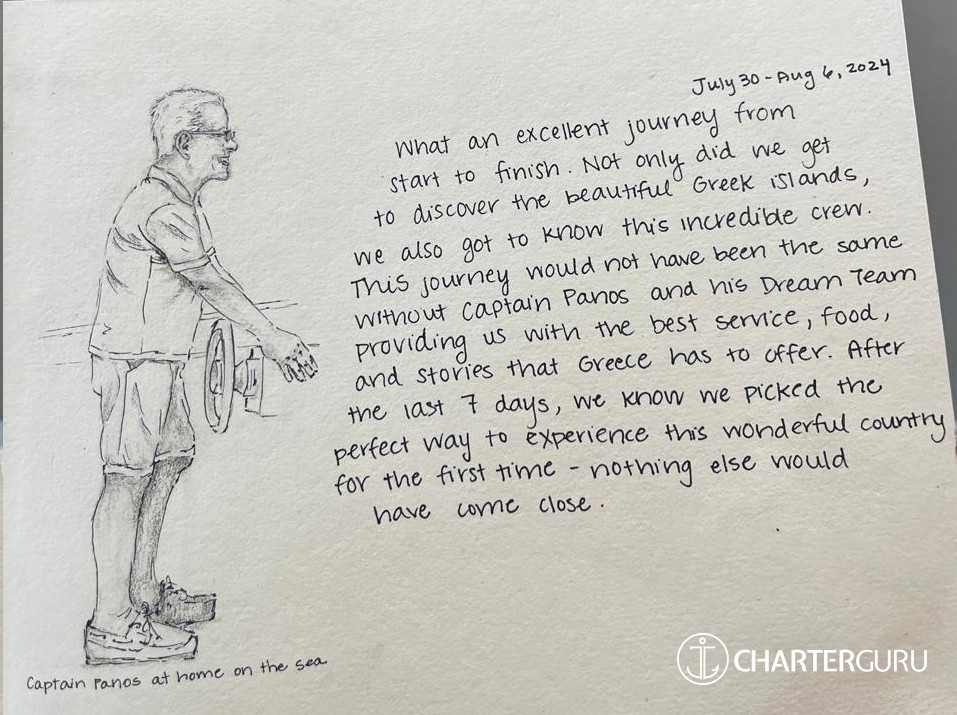 July 30 - Aug 6, 2024
What an excellent journey from
start to finish. Not only did we get
to discover the beautiful Greek islands,
we also got to know this incredible crew.
This journey would not have been the same
without Captain Panos and his Dream Team
providing us with the best service, food,
and stories that Greece has to offer. After
the last 7 days, we know we picked the
perfect way to experience this wonderful country
for the first time - nothing else would
have come close.
Captain Panos at home on the sea
CHARTERGURU